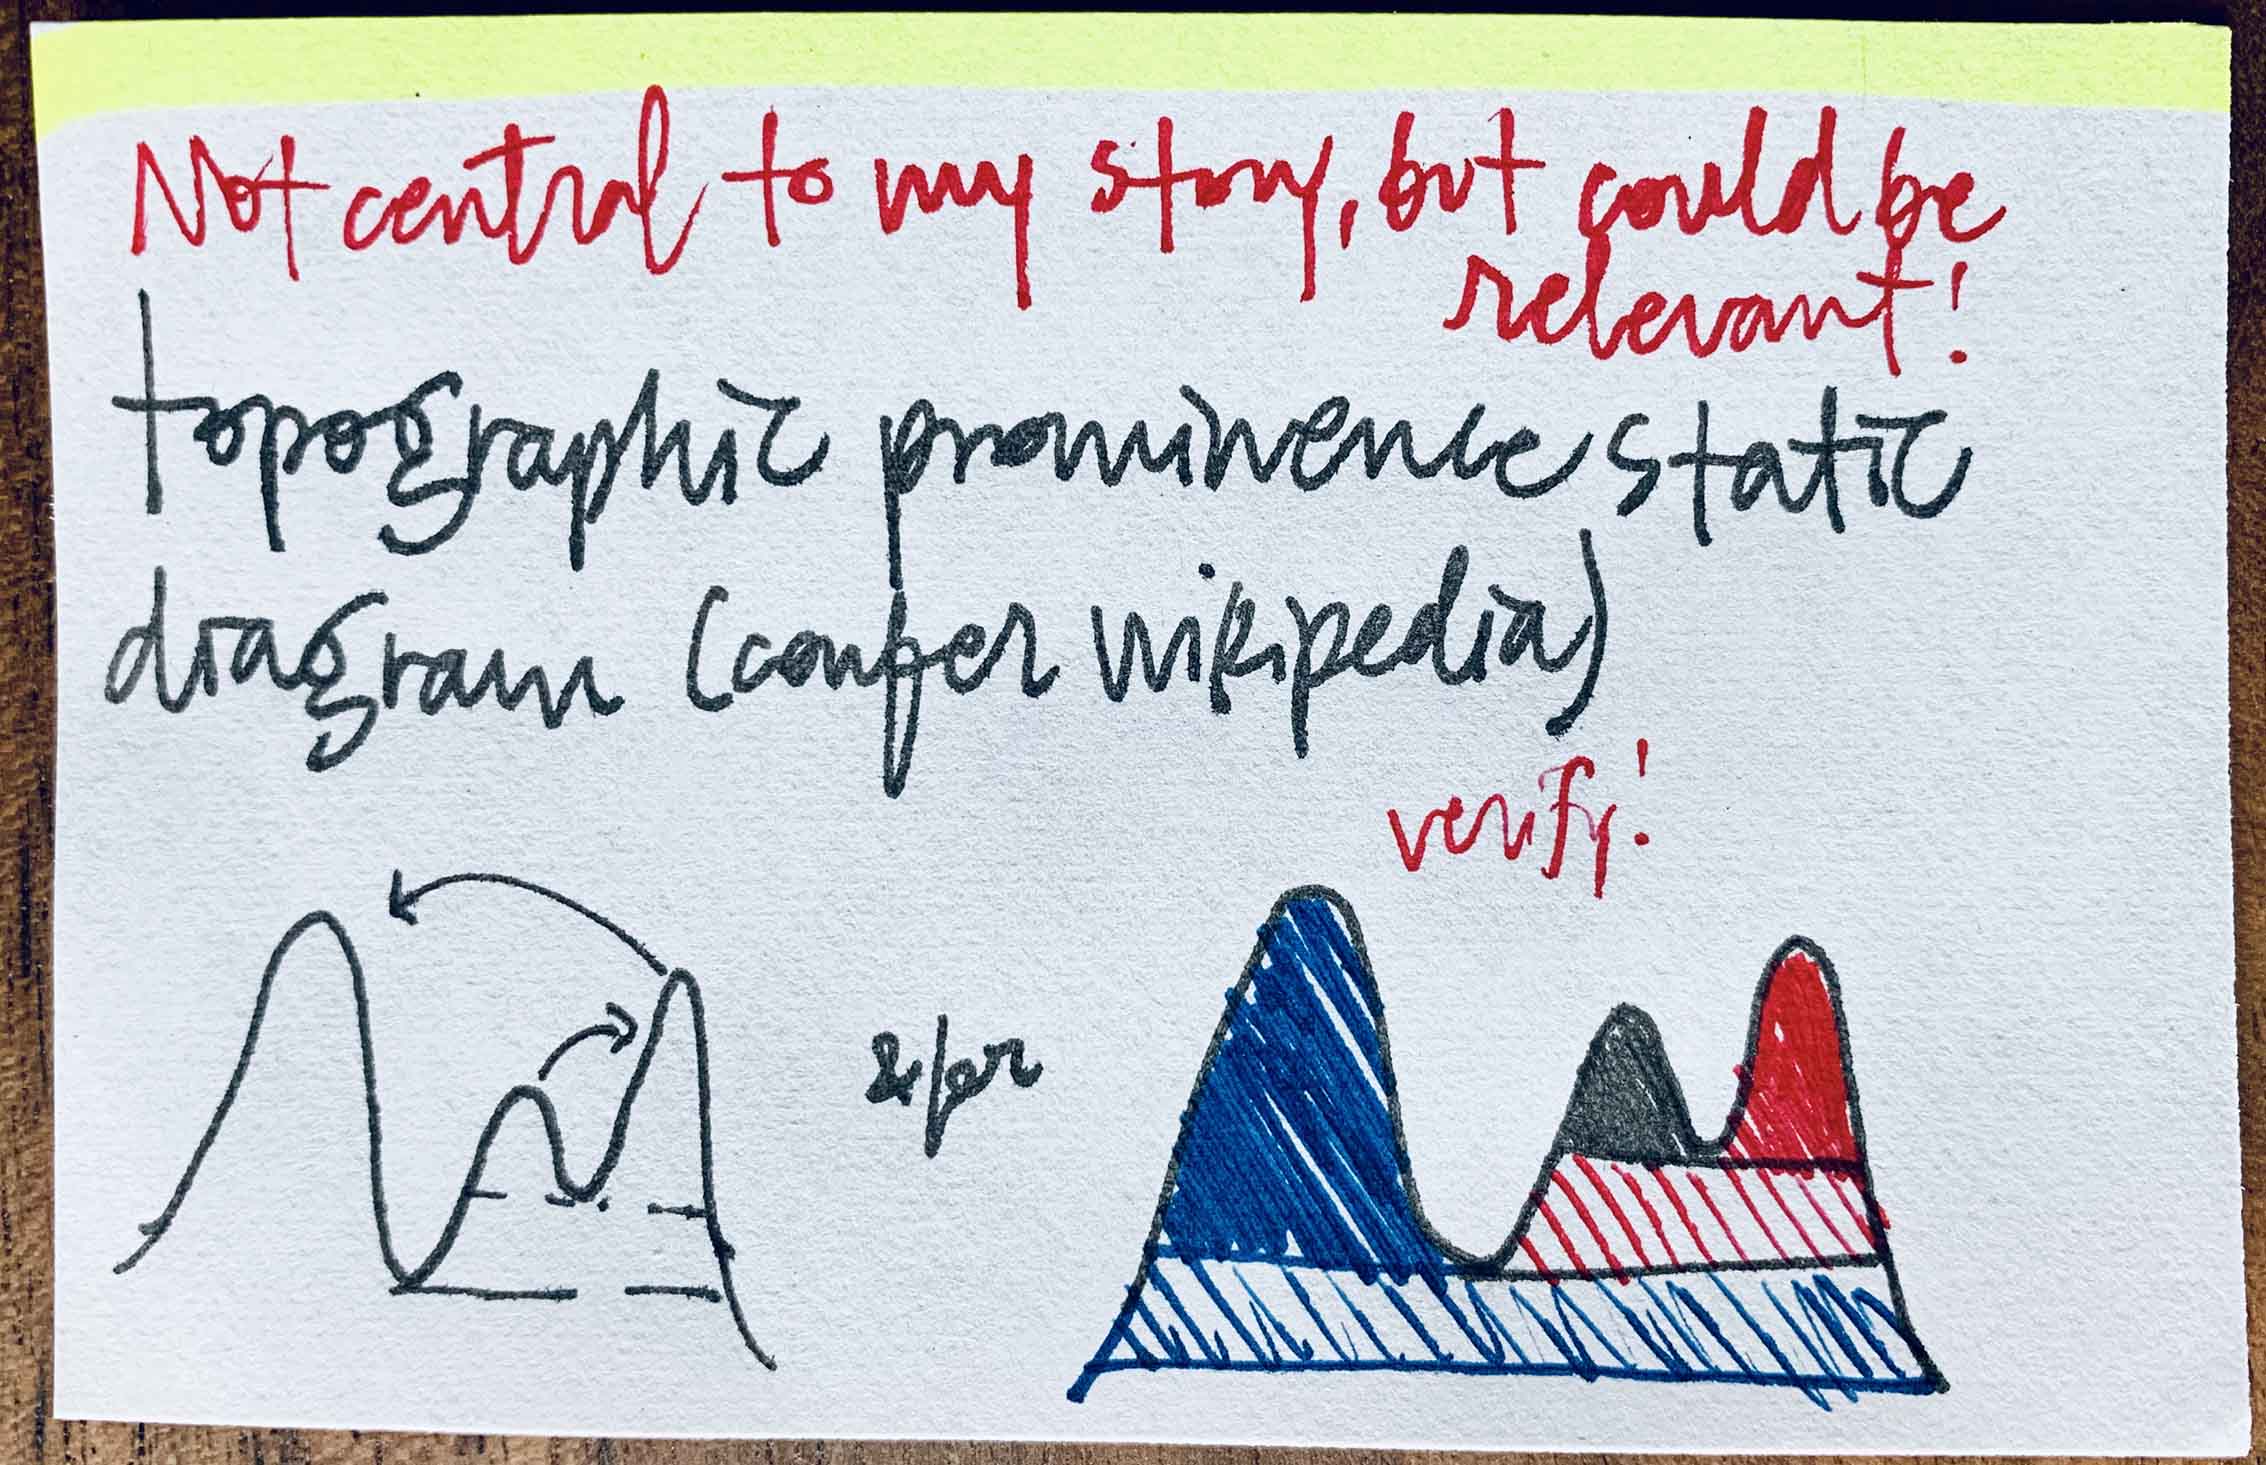 Not central to my story, but could be
relevant!
topographic prominence static
diagram (confer wikipedia)
verify!
&/or